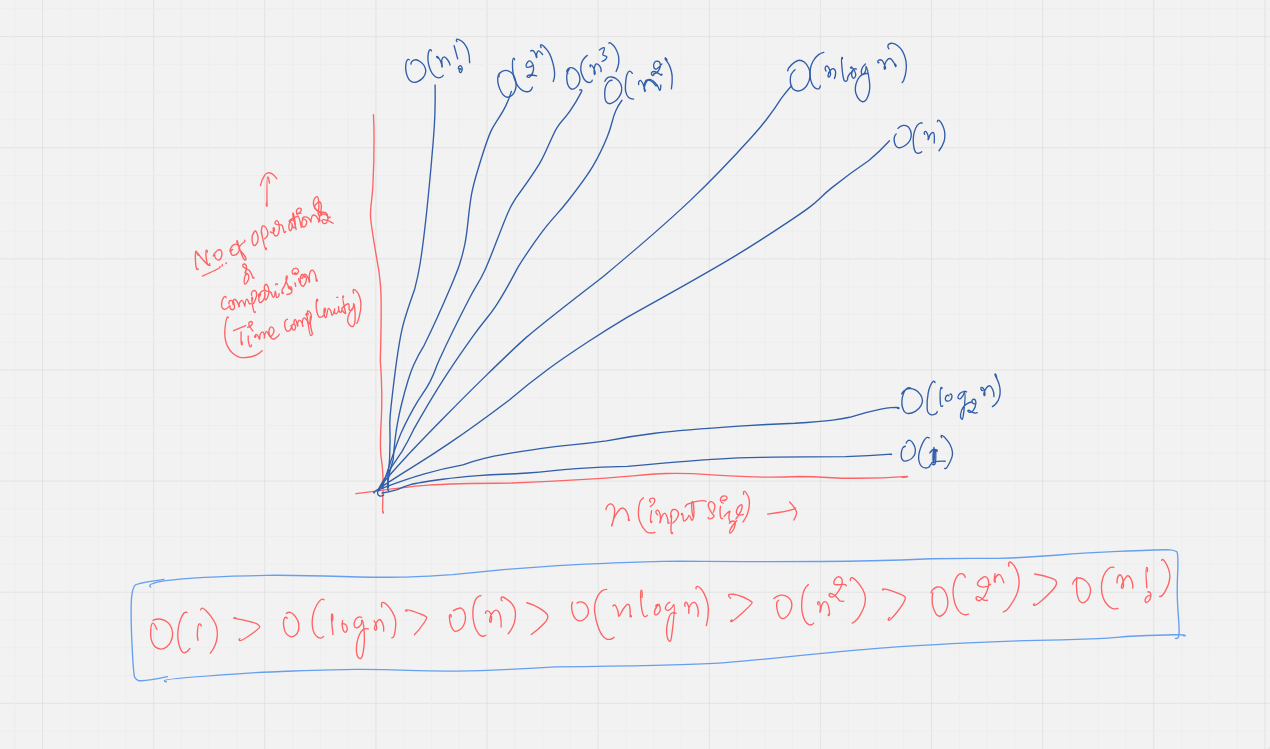 O(n!)
O(2^n)
O(n^3)
O(n^2)
O(n log n)
O(n)
↑
No. of operations
&
comparision
(Time complexity)
O(log₂n)
O(1)
n (input size) →
O(1) > O(log n) > O(n) > O(n log n) > O(n^2) > O(2^n) > O(n!)